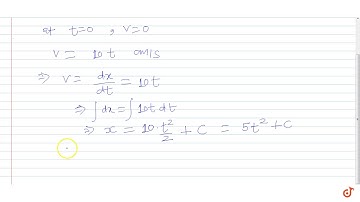 at t=0 , v=0
v = 10t cm/s
⇒ v = dx/dt = 10t
⇒ ∫dx = ∫10t dt
⇒ x = 10·t²/2 + C = 5t² + C